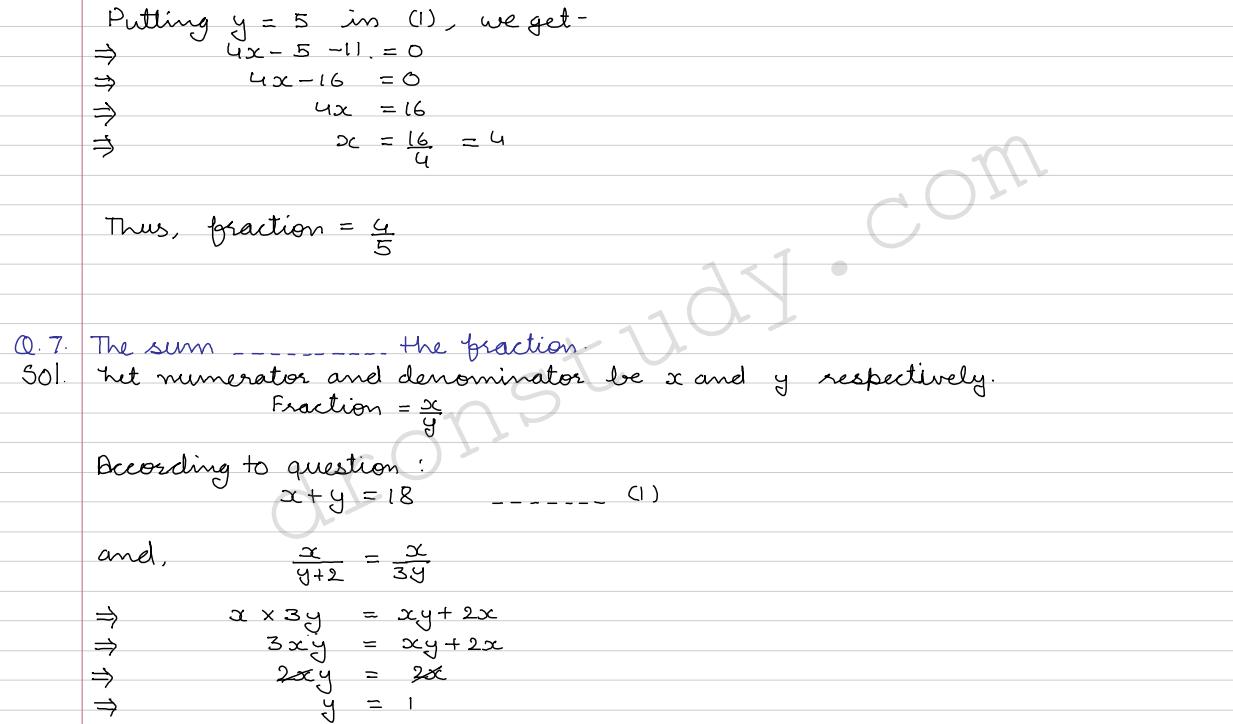 Putting y = 5 in (1), we get-
⇒ 4x - 5 - 11. = 0
⇒ 4x - 16 = 0
⇒ 4x = 16
⇒ x = 16/4 = 4
Thus, fraction = 4/5
Q.7. The sum __________ the fraction.
Sol. Let numerator and denominator be x and y respectively.
Fraction = x/y
According to question :
x + y = 18 _______ (1)
and, x/(y+2) = x/3y
⇒ x × 3y = xy + 2x
⇒ 3xy = xy + 2x
⇒ 2xy = 2x
⇒ y = 1
dronstudy.com